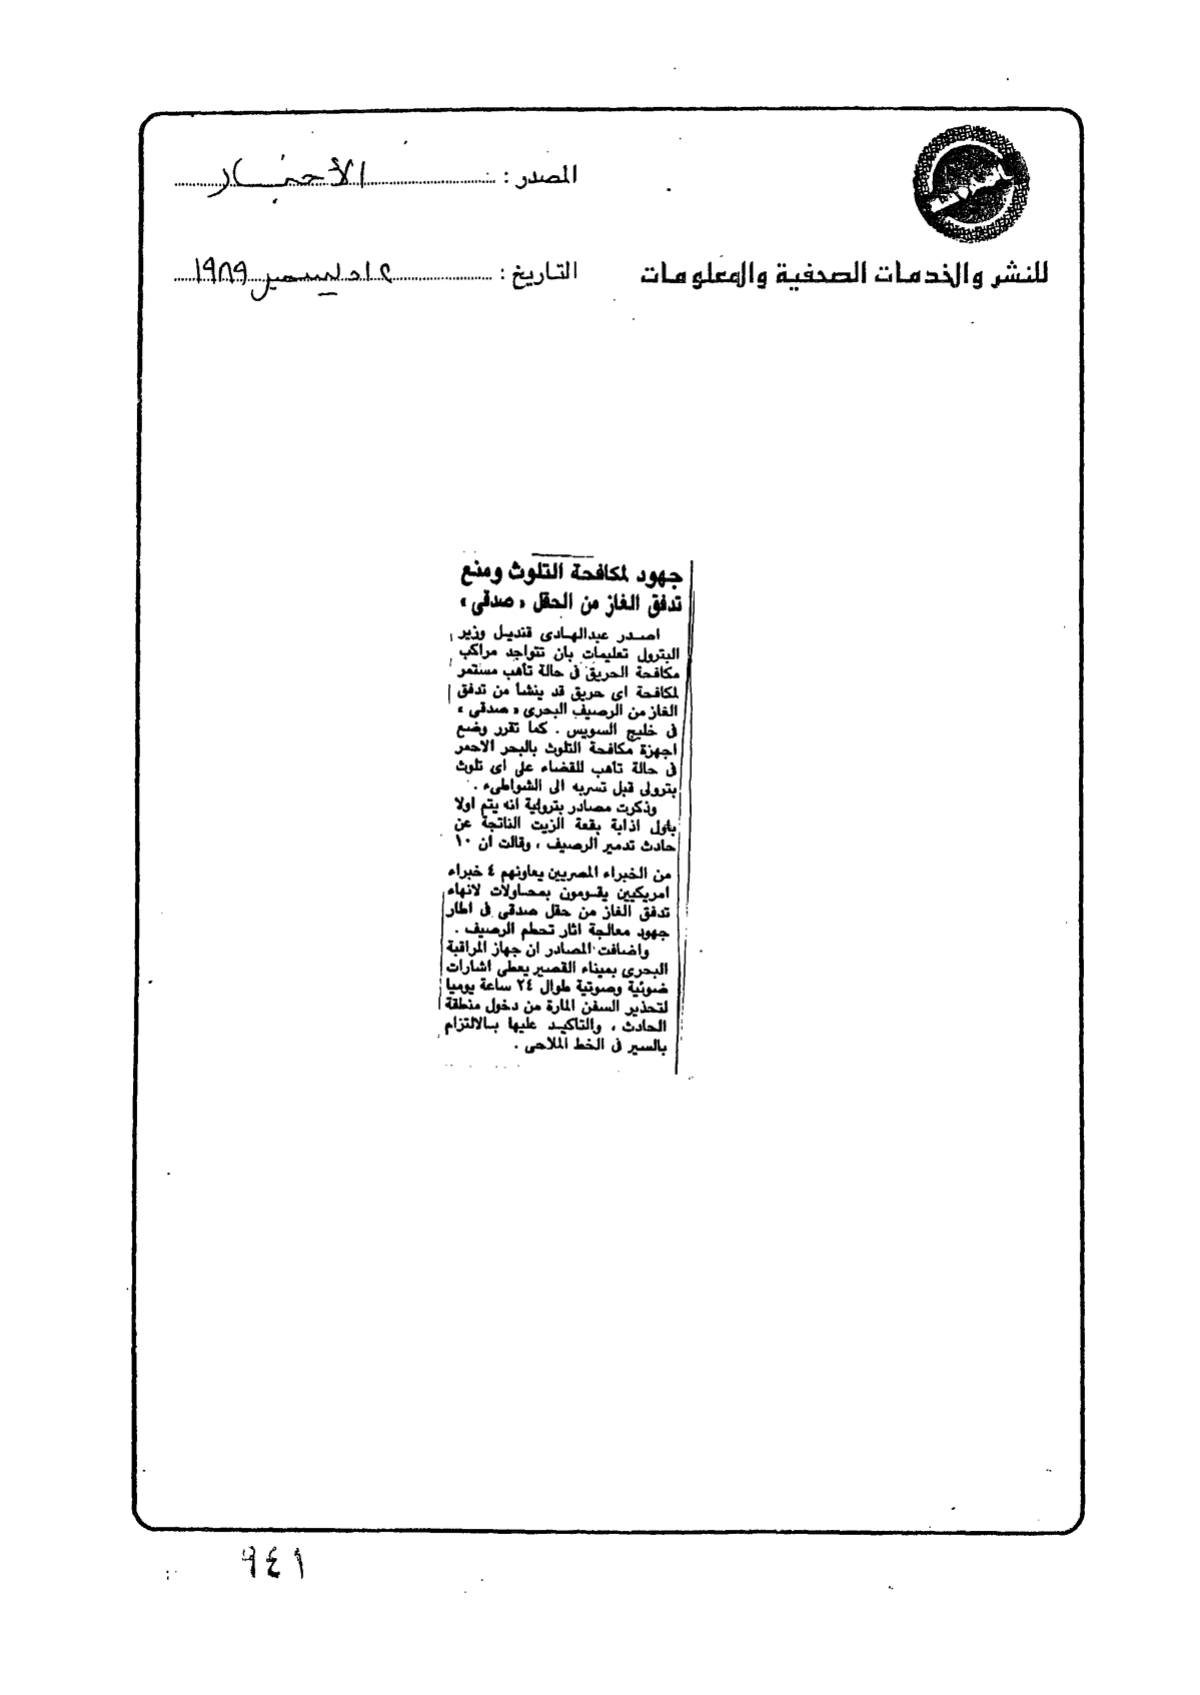 المصدر : الأخبار
للنشر والخدمات الصحفية والمعلومات
التاريخ : ١٢ ديسمبر ١٩٨٩
جهود لمكافحة التلوث ومنع
تدفق الغاز من الحقل « صدقى »
اصدر عبدالهادى قنديل وزير
البترول تعليمات بان تتواجد مراكب
مكافحة الحريق فى حالة تأهب مستمر
لمكافحة اى حريق قد ينشأ من تدفق
الغاز من الرصيف البحرى « صدقى »
فى خليج السويس . كما تقرر وضع
اجهزة مكافحة التلوث بالبحر الاحمر
فى حالة تأهب للقضاء على اى تلوث
بترولى قبل تسربه الى الشواطىء .
وذكرت مصادر بترولية انه يتم اولا
باول اذابة بقعة الزيت الناتجة عن
حادث تدمير الرصيف ، وقالت ان ١٠
من الخبراء المصريين يعاونهم ٤ خبراء
امريكيين يقومون بمحاولات لانهاء
تدفق الغاز من حقل صدقى فى اطار
جهود معالجة اثار تحطم الرصيف .
واضافت المصادر ان جهاز المراقبة
البحرى بميناء القصير يعطى اشارات
ضوئية وصوتية طوال ٢٤ ساعة يوميا
لتحذير السفن المارة من دخول منطقة
الحادث ، والتاكيد عليها بالالتزام
بالسير فى الخط الملاحى .
٩٤١